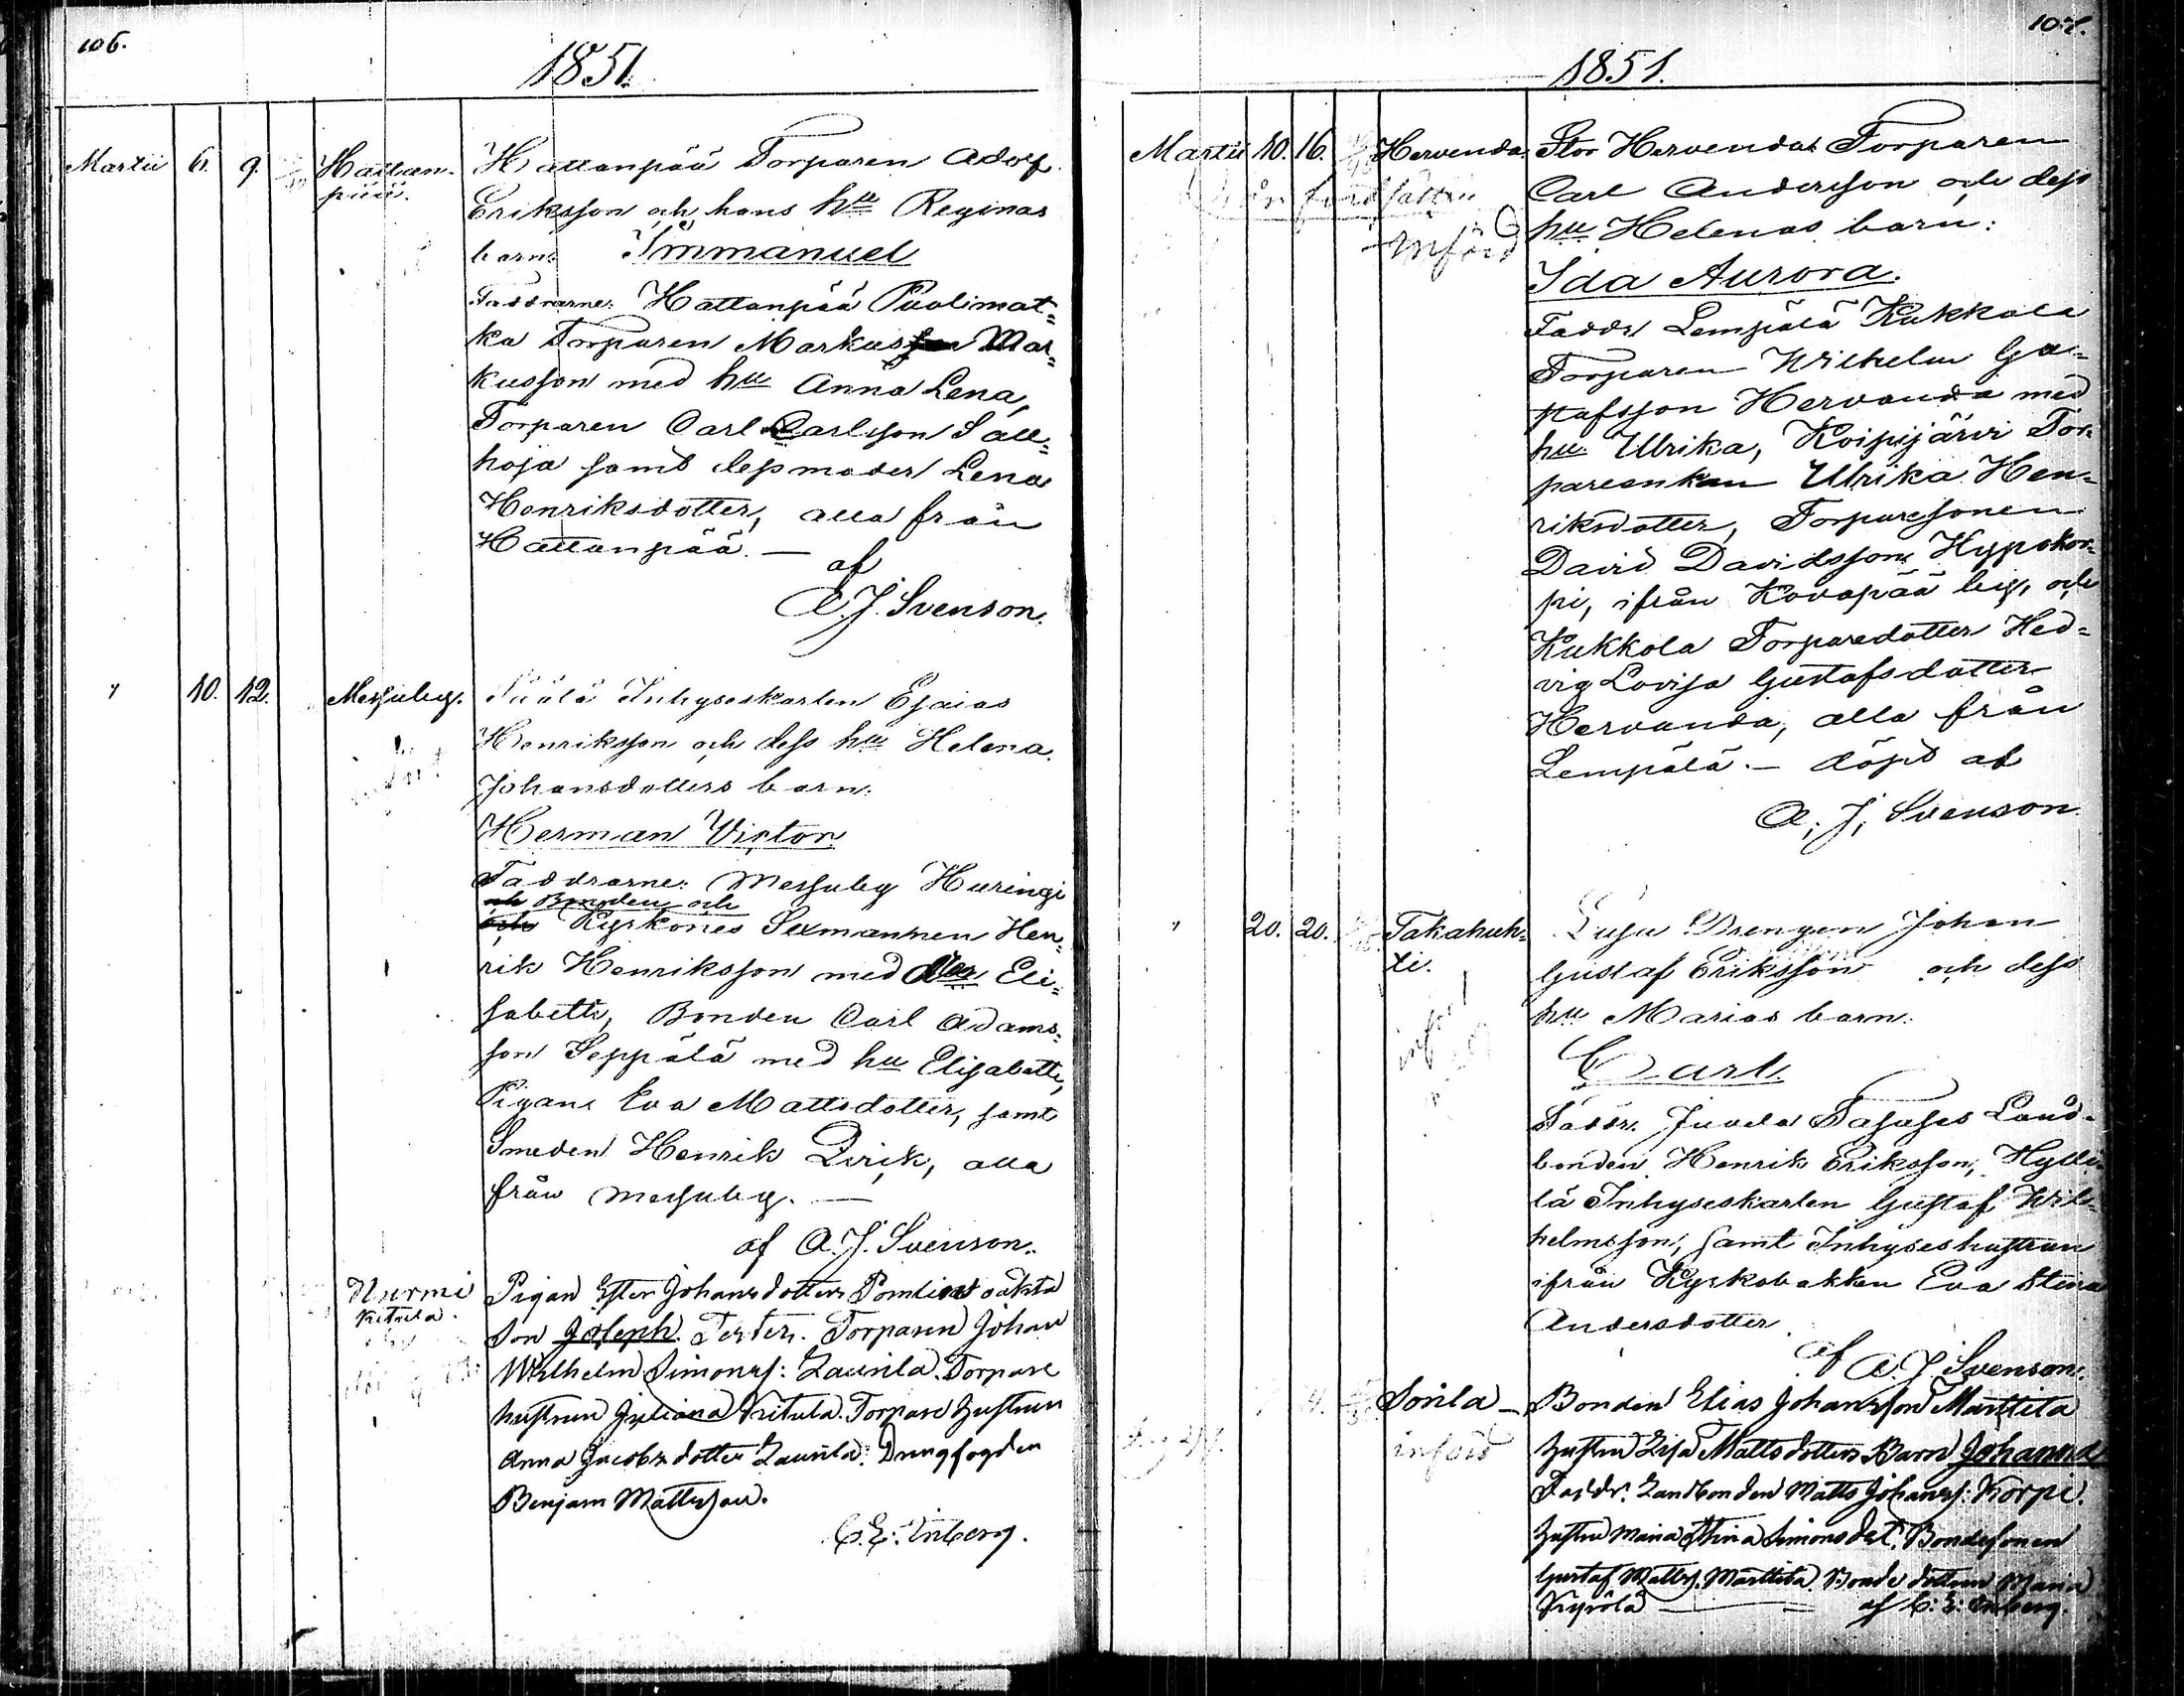 106.
1851.
Martii 6. 9. Hattan-
pää.
Hattanpää Torparen Adolf
Eriksson och hans hu Reginas
barn: Immanuel
Faddrarne: Hattanpää Puolimat=
ka Torparen Markus Mar=
kusson med hu Anna Lena,
Torparen Carl Carlsson Sall=
hoja samt dess moder Lena
Henriksdotter, alla från
Hattanpää. — af
A. J. Svenson.
" 10. 12. Messuby.
Inhyseskarlen Esaias
Henriksson och dess hu Helena
Johansdotters barn:
Herman Victor
Faddrarne: Messuby Huringi
och Bonden och
och Kyrkones Sexmannen Hen=
rik Henriksson med Eli=
sabeth, Bonden Carl Adams=
son Seppälä med hu Elisabeth,
Pigan Eva Mattsdotter, samt
Smeden Henrik Qvick, alla
från Messuby. —
af A. J. Svenson.
Nurmi
Kitula.
Pigan Ester Johansdotters oäkta
son Joseph. Test. Torparen Johan
Wilhelm Simonss: Laurila. Torpare
hustrun Juliana Kritula. Torpare hustrun
Anna Jacobsdotter Laurila. Drengfogden
Benjam Mattsson.
C. E. Enberg.
107.
1851.
Martii 10. 16. Hervenda.
införd
Stor Hervendas Torparen
Carl Andersson och dess
hu Helenas barn:
Ida Aurora.
Faddr. Lempälä Kukkola
Torparen Wilhelm Gu=
stafsson Hervanda med
hu Ulrika, Koipijärvi Tor=
pareenkan Ulrika Hen=
riksdotter, Torparesonen
David Davidsson Hyppökor=
pi, ifrån Kovapää by, och
Kukkola Torparedotter Hed=
vig Lovisa Gustafsdotter
Hervanda, alla från
Lempälä. — döpt af
A. J. Svenson
" 20. 20. Takahuh=
ti.
införd
Drengen Johan
Gustaf Eriksson och dess
hu Marias barn:
Carl.
Faddr. Juvela Land=
bonden Henrik Eriksson, Hylli=
lä Inhyseskarlen Gustaf Wil=
helmsson, samt Inhyseshustrun
ifrån Kyrkobakken Eva Stina
Andersdotter
af A. J. Svenson.
Sorila —
införd
Bonden Elias Johansson Märttila
hustru Lisa Mattsdotters Barn Johanna
Faddr. Landbonden Matts Johanss: Korpi.
hustru Maria Stina Simonsdot. Bondesonen
Gustaf Mattss. Märttila Bonde dottern Maria
Kyrölä — af C: E: Enberg.